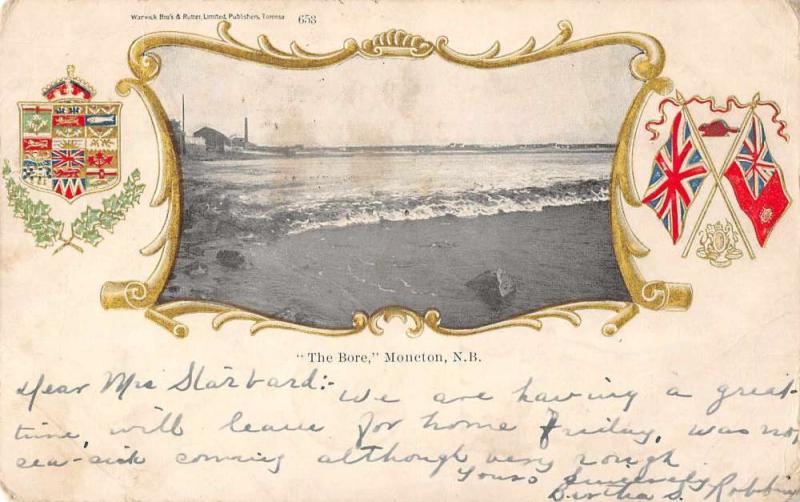 Warwick Bro's & Rutter, Limited, Publishers, Toronto 653
"The Bore," Moncton, N.B.
Dear Mrs Starbard:- We are having a great
time will leave for home Friday, was not
sea-sick coming although very rough
Yours Sincerely
Bertha S. Robbins